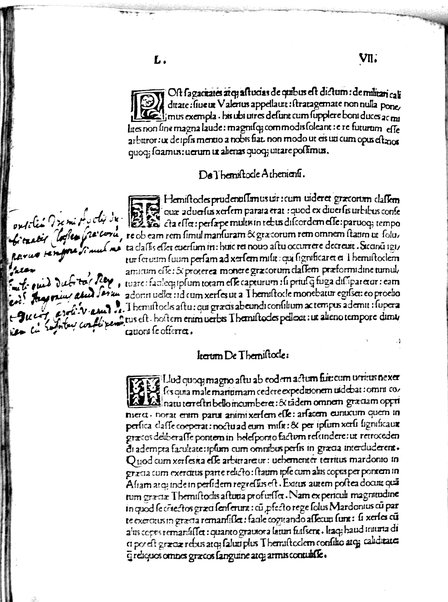 L. VII.
POst sagacitatẽ atq; astucias de quibus est dictum: de militari cali
ditate: siue ut Valerius appellauit: stratagemate non nulla pone
imus exempla. his ubi uires desunt cum supplere boni duces ac mi
lites non sine magna laude: magnisq; commodis soleant: e re futurum esse
arbitror: ut de ipsis mentio a nobis fiat. non modo ut eis uti cum opus est
quoq; sciamus: uerum ut alienas quoq; uitare possimus.
De Themistocle Atheniensi.
THemistocles prudentissimus uir: cum uideret græcorum classem
quæ aduersus xersem parata erat: quod ex diuersis urbibus confe
cta esset: persæpe multis in rebus discordem esse: paruoq; tempo
re ob eam rem simul mansuram & græcorum rem omnem statim ut solu
ta classis esset euersum iri: huic rei nouo astu occurrere decreuit.
seruum suum persam ad xersem misit: qui significaret ei Themistoclem
amicum esse: & propterea monere græcorum classem
facileq; ipsum totam esse capturum: si priusq̃ fuga disparæret: eam
adoriri uellet: id cum xerses ut a Themistocle monebatur egisset: eo prœlio
Themistoclis astu: qui græcis abeundi consilium ac tempus ademit: supera
tus est. hostem enim uerbis Themistocles pellexit: ut alieno tempore dimi
cationi se offerret.
Iterum De Themistocle:
ILlud quoq; magno astu ab eodem actum fuit: cum ueritus ne xer
ses quia male maritimam cedere expeditionem uidebat: omni co
natu terrestri bello incumberet: & eadem omnem græciam oppri
meret. norat enim parui animi xersem esse: arsacem eunucum quem in
persica classe ceperat: noctu ad eum misit: & per ipsum xersi significauit
græcos deliberasse pontem in helesponto factum rescindere: ut retrocedeñ
di adempta facultate: ipsum cum omnibus persis in græcia intercluderent.
Quod cum xerses ita esse arbitraretur: uehementer territus mardonio in
græcia cum exercitus parte relicto: statim ipse cum aliis copiis per pontem in
Asiam atq; inde in persidem regressus est. Exitus autem postea docuit quã
tum græciæ Themistoclis astutia profuisset. Nam ex periculi magnitudine
in quod se cõiectos græci senserunt: cũ ꝓfecto rege solus Mardonius cũ par
te exercitus in græcia remansisset: facile cogitando assecuti sunt: si xerses cũ
aliis copiis remansisset: quanto grauiora laturi fuissent. Itaq; haud iniuria di
ci potest græciæ rebus atq; saluti plus Themistoclem consilio atq; caliditate:
q̃ reliquos omnes græcos sanguine atq; armis contulisse.